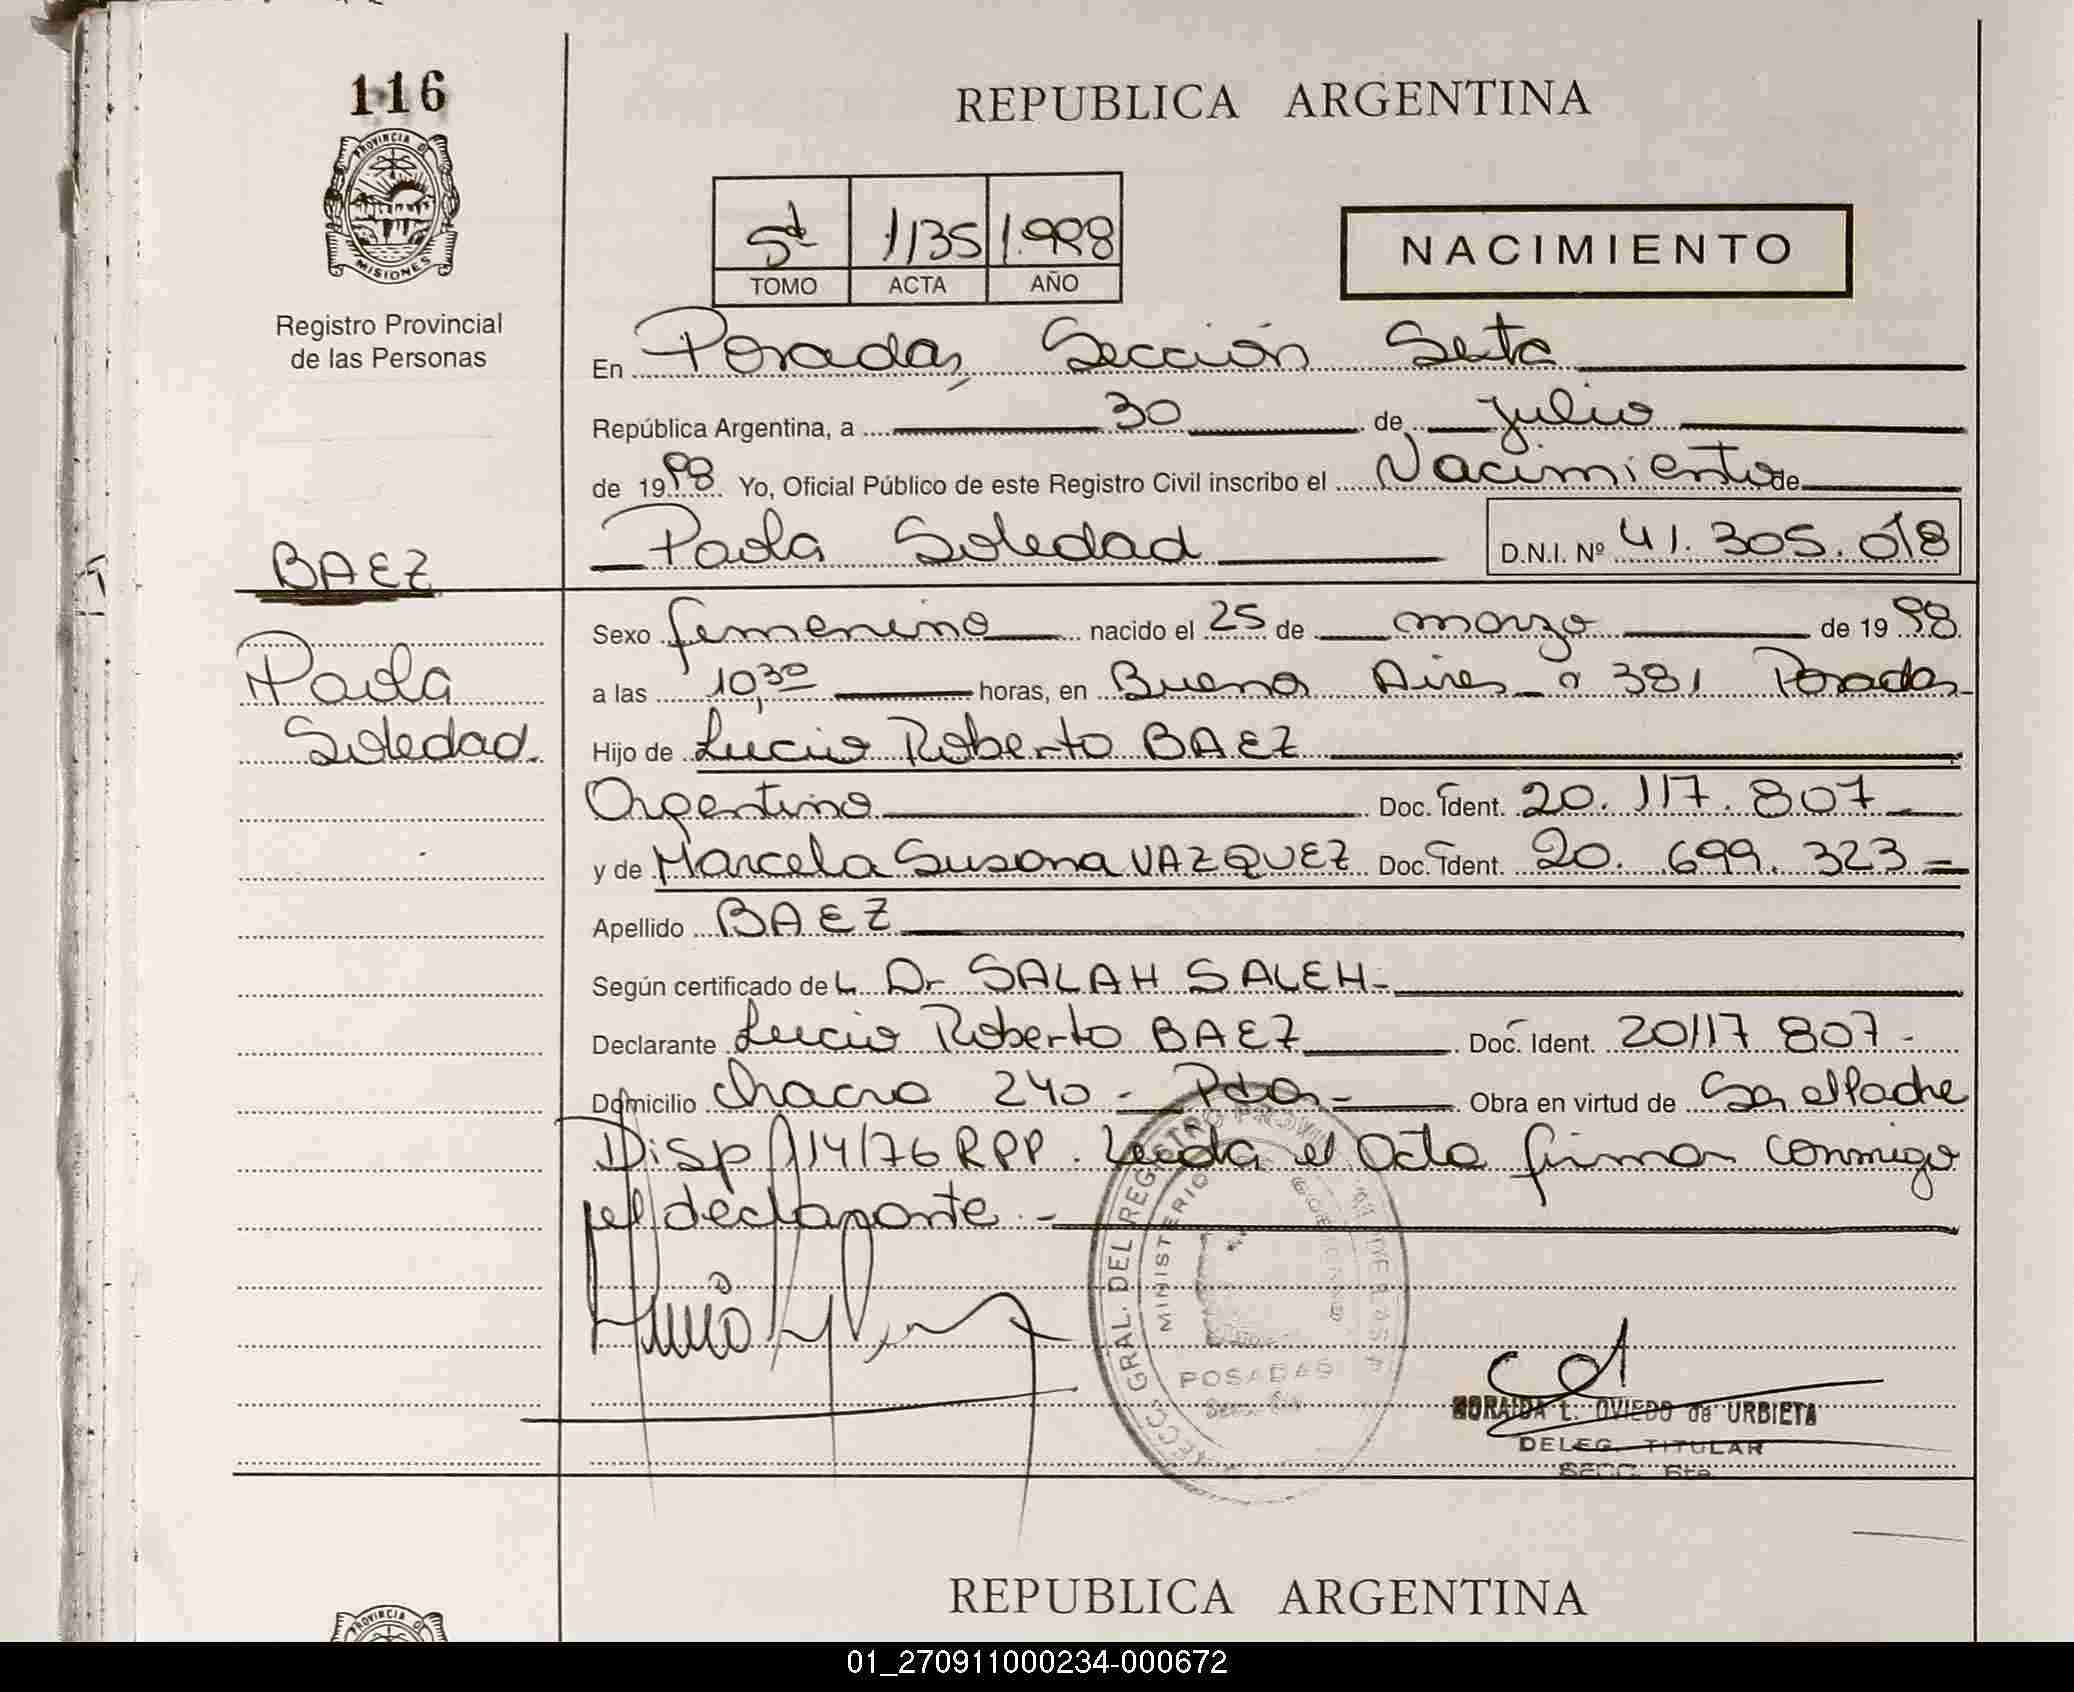 116
PROVINCIA DE
MISIONES
Registro Provincial
de las Personas
REPUBLICA ARGENTINA
5t 1135 1.998
TOMO ACTA AÑO
NACIMIENTO
En Posadas, Sección Sexta
República Argentina, a 30 de julio
de 1998 Yo, Oficial Público de este Registro Civil inscribo el Nacimiento de
Paola Soledad D.N.I. Nº 41.305.018
BAEZ
Paola
Soledad.
Sexo femenino nacido el 25 de marzo de 1998
a las 10,30 horas, en Buenos Aires 381 Posadas
Hijo de Lucio Roberto BAEZ
Argentino Doc. Ident. 20.117.807
y de Marcela Susana VAZQUEZ Doc. Ident. 20.699.323
Apellido BAEZ
Según certificado de L Dr SALAH SALEH
Declarante Lucio Roberto BAEZ Doc. Ident. 20117 807
Domicilio chacra 240 - Pdas - Obra en virtud de Ser el Padre
Disp 114/76 RPP. Leida el Acta firman conmigo
el declarante
GRAL. DEL REGISTRO PROVI
MINISTERIO GOBIERNO
POSADAS
ZORAIDA L. OVIEDO de URBIETA
DELEG. TITULAR
SECC. 6ta.
REPUBLICA ARGENTINA
PROVINCIA DE
01_270911000234-000672